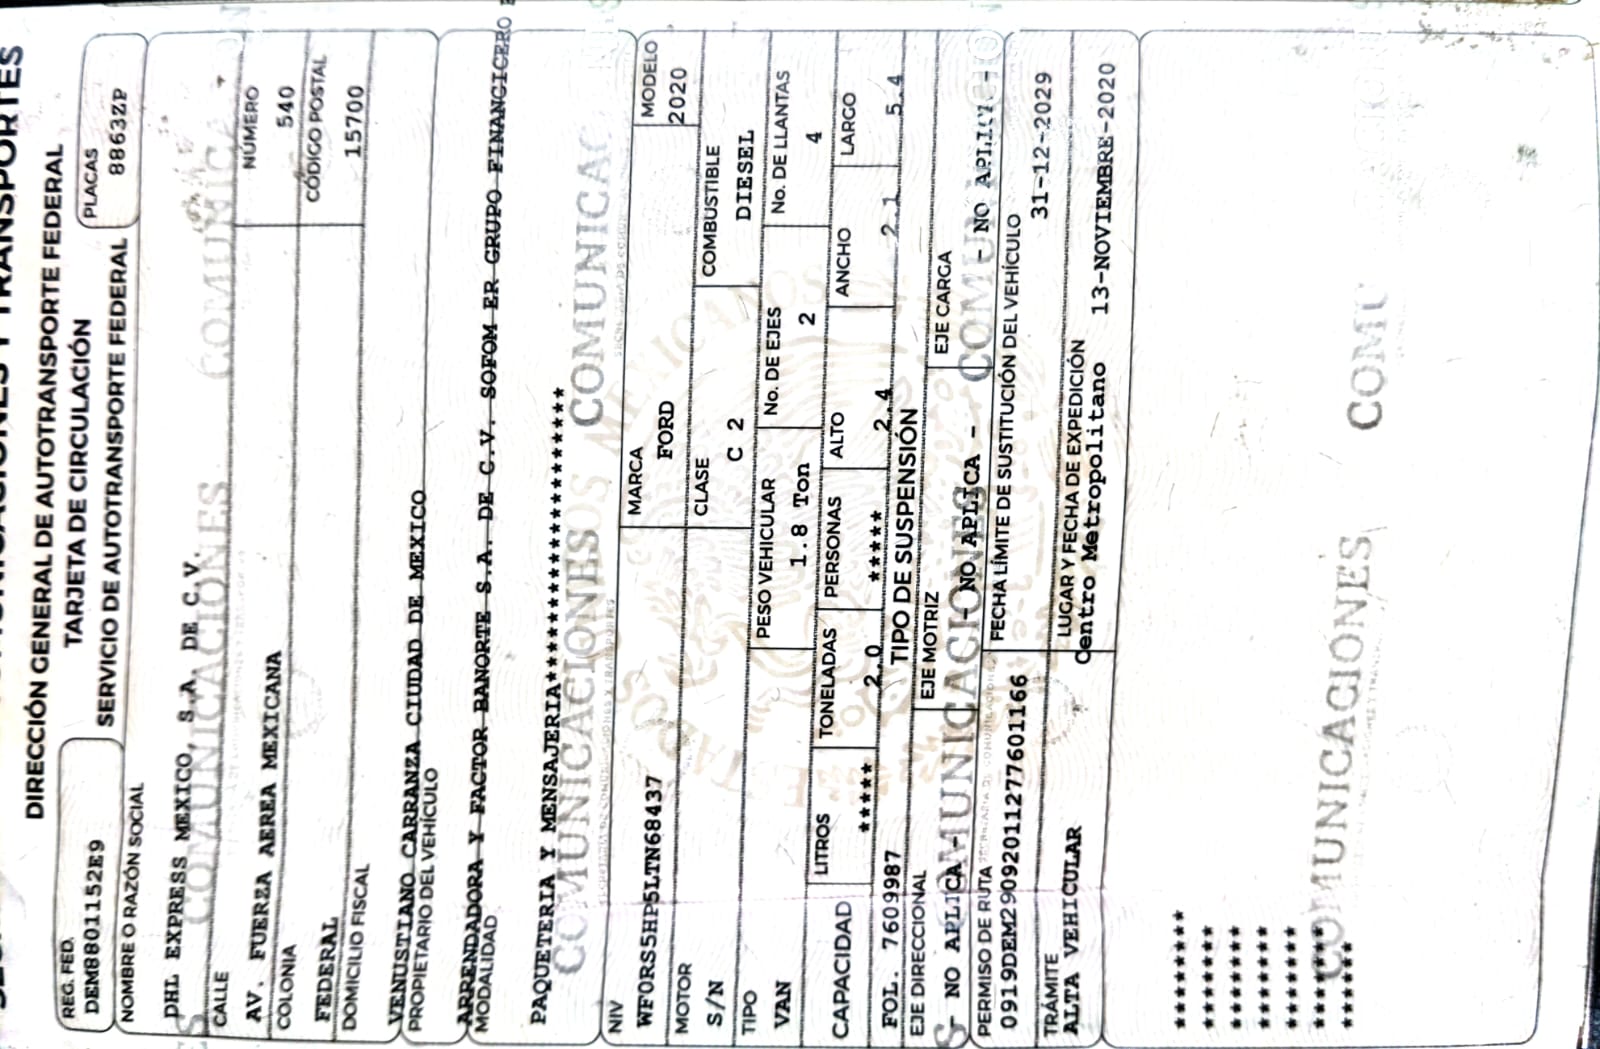 DIRECCIÓN GENERAL DE AUTOTRANSPORTE FEDERAL
TARJETA DE CIRCULACIÓN
SERVICIO DE AUTOTRANSPORTE FEDERAL
REG. FED.
DEM8801152E9
PLACAS
88663ZP
NOMBRE O RAZÓN SOCIAL
DHL EXPRESS MEXICO, S.A. DE C.V.
CALLE
AV. FUERZA AEREA MEXICANA
NÚMERO
540
COLONIA
FEDERAL
CÓDIGO POSTAL
15700
DOMICILIO FISCAL
VENUSTIANO CARRANZA CIUDAD DE MEXICO
PROPIETARIO DEL VEHÍCULO
ARRENDADORA Y FACTOR BANORTE S.A. DE C.V. SOFOM ER GRUPO FINANCIERO
MODALIDAD
PAQUETERIA Y MENSAJERIA**************************
NIV
WF0RS5HP5LTN68437
MARCA
FORD
MODELO
2020
MOTOR
S/N
CLASE
C 2
COMBUSTIBLE
DIESEL
TIPO
VAN
PESO VEHICULAR
1.8 Ton
No. DE EJES
2
No. DE LLANTAS
4
CAPACIDAD
LITROS
*****
TONELADAS
2.0
PERSONAS
*****
ALTO
2.4
ANCHO
2.1
LARGO
5.4
FOL. 7609987
TIPO DE SUSPENSIÓN
EJE DIRECCIONAL
- NO APLICA -
EJE MOTRIZ
- NO APLICA -
EJE CARGA
- NO APLICA -
PERMISO DE RUTA
0919DEM29092011277601166
FECHA LÍMITE DE SUSTITUCIÓN DEL VEHÍCULO
31-12-2029
TRÁMITE
ALTA VEHICULAR
LUGAR Y FECHA DE EXPEDICIÓN
Centro Metropolitano 13-NOVIEMBRE-2020
********
*******
*******
*******
*******
*******
******
COMUNICACIONES